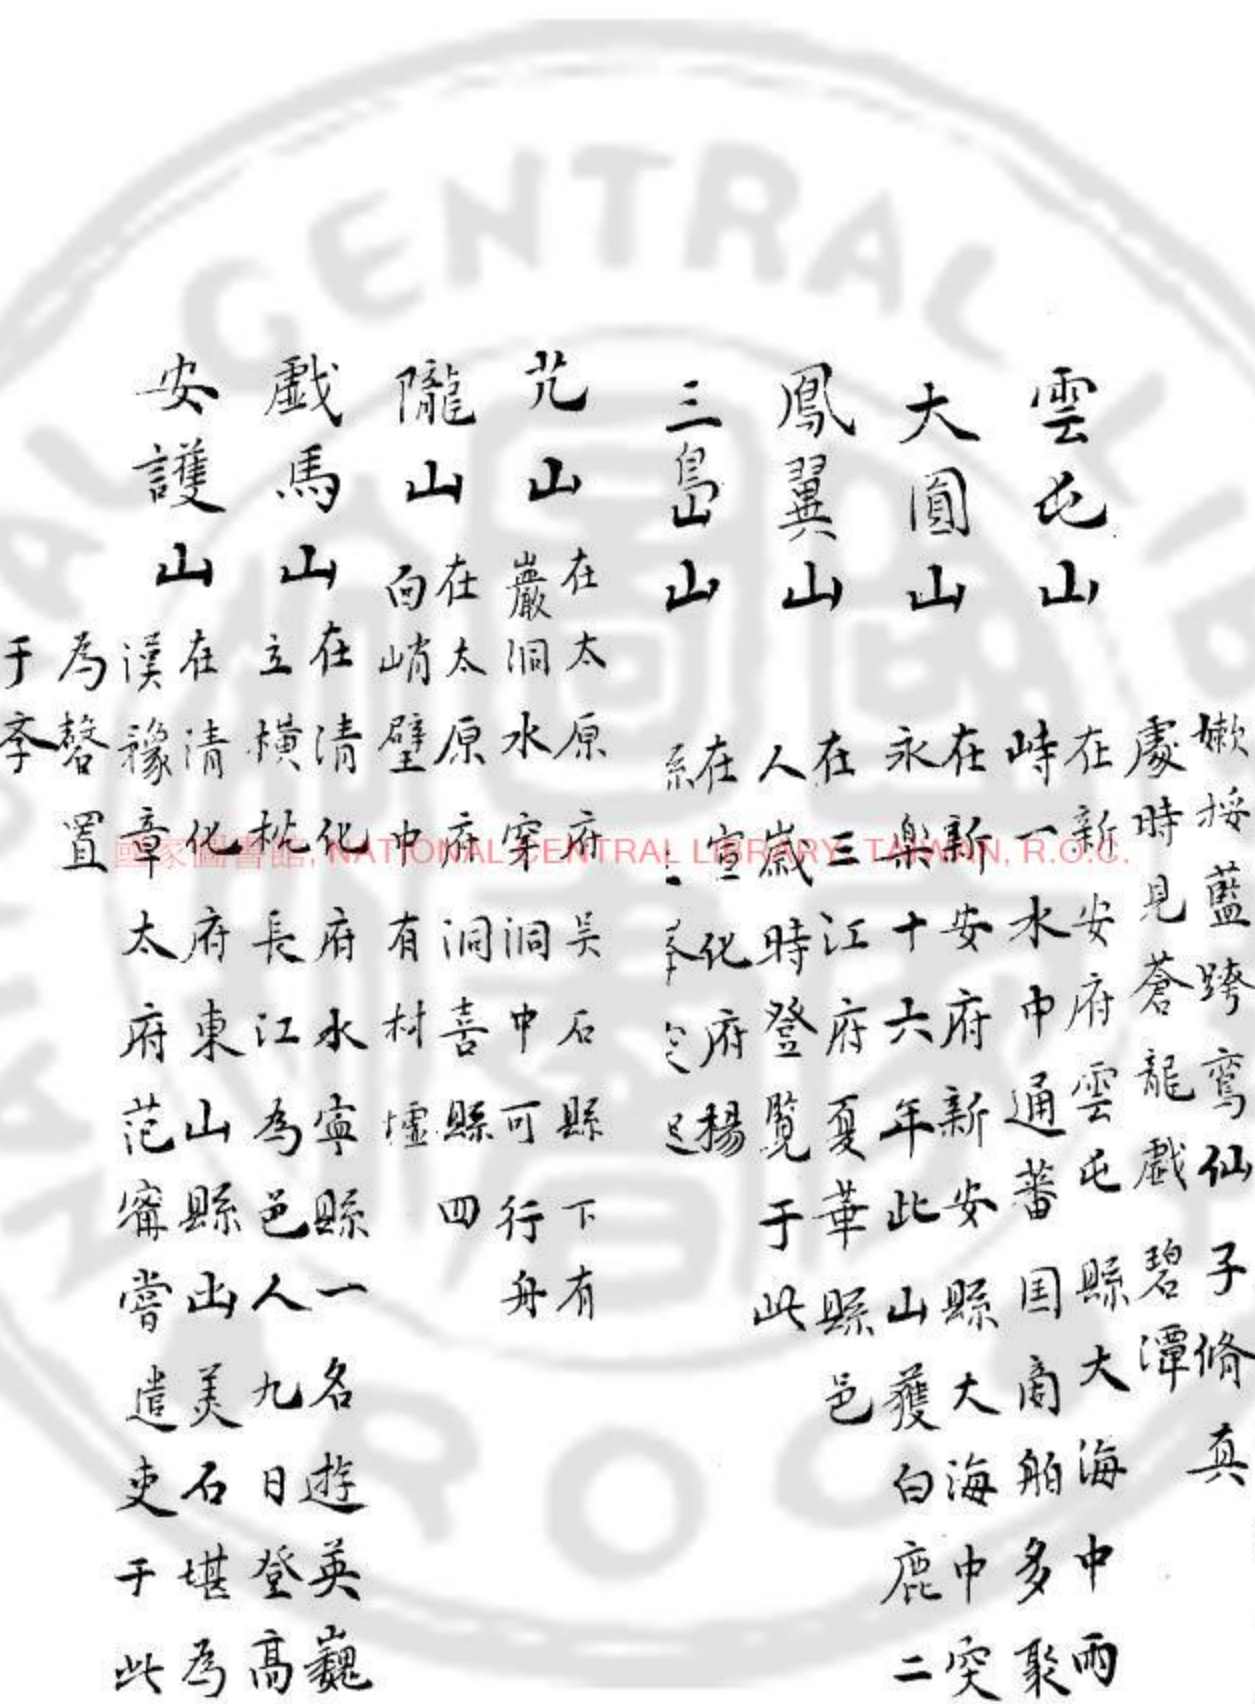 嫰挼藍跨鸞仙子脩真
處時見蒼龍戲碧潭
雲屯山
在新安府雲屯縣大海中兩
峙一水中通蕃国商舶多聚
大圓山
在新安府新安縣大海中突
永樂十六年此山獲白鹿二
鳳翼山
在三江府夏華縣邑
人歲時登覽于此
三島山
在宣化府楊
艽山
在太原府吴石縣下有
巖洞水穿洞中可行舟
隴山
在太原府洞喜縣四
向峭壁中有村墟
戲馬山
在清化府水寧縣一名遊英巍
立橫枕長江為邑人九日登高
安護山
在清化府東山縣出美石堪為
漢豫章太府范甯嘗遣吏于此
為磬置
于李
國家圖書館, NATIONAL CENTRAL LIBRARY, TAIWAN, R.O.C.